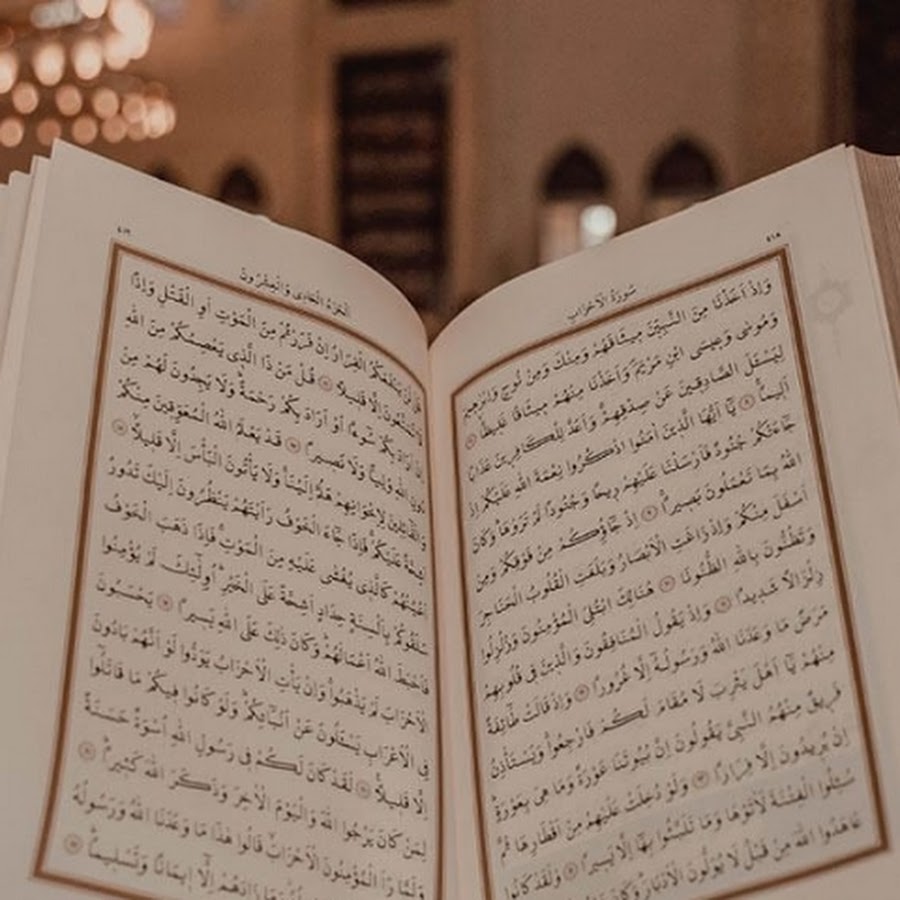 ٤١٨
سُورَةُ الْاَحْزَابِ
وَاِذْ اَخَذْنَا مِنَ النَّبِيّنَ مِيثَاقَهُمْ وَمِنْكَ وَمِنْ نُوحٍ وَاِبْرٰهِيمَ
وَمُوسٰى وَعِيسَى ابْنِ مَرْيَمَ وَاَخَذْنَا مِنْهُمْ مِيثَاقًا غَلِيظًا
لِيَسْـَٔلَ الصَّادِقِينَ عَنْ صِدْقِهِمْ وَاَعَدَّ لِلْكَافِرِينَ عَذَابًا
اَلِيمًا يَٓا اَيُّهَا الَّذِينَ اٰمَنُوا اذْكُرُوا نِعْمَةَ اللّٰهِ عَلَيْكُمْ اِذْ
جَٓاءَتْكُمْ جُنُودٌ فَاَرْسَلْنَا عَلَيْهِمْ رِيحًا وَجُنُودًا لَمْ تَرَوْهَا وَكَانَ
اللّٰهُ بِمَا تَعْمَلُونَ بَصِيرًا اِذْ جَٓاؤُكُمْ مِنْ فَوْقِكُمْ وَمِنْ
اَسْفَلَ مِنْكُمْ وَاِذْ زَاغَتِ الْاَبْصَارُ وَبَلَغَتِ الْقُلُوبُ الْحَنَاجِرَ
وَتَظُنُّونَ بِاللّٰهِ الظُّنُونَا هُنَالِكَ ابْتُلِيَ الْمُؤْمِنُونَ وَزُلْزِلُوا
زِلْزَالًا شَدِيدًا وَاِذْ يَقُولُ الْمُنَافِقُونَ وَالَّذِينَ فِي قُلُوبِهِمْ
مَرَضٌ مَا وَعَدَنَا اللّٰهُ وَرَسُولُهُٓ اِلَّا غُرُورًا وَاِذْ قَالَتْ طَٓائِفَةٌ
مِنْهُمْ يَٓا اَهْلَ يَثْرِبَ لَا مُقَامَ لَكُمْ فَارْجِعُوا وَيَسْتَأْذِنُ
فَرِيقٌ مِنْهُمُ النَّبِيَّ يَقُولُونَ اِنَّ بُيُوتَنَا عَوْرَةٌ وَمَا هِيَ بِعَوْرَةٍ
اِنْ يُرِيدُونَ اِلَّا فِرَارًا وَلَوْ دُخِلَتْ عَلَيْهِمْ مِنْ اَقْطَارِهَا ثُمَّ
سُئِلُوا الْفِتْنَةَ لَاٰتَوْهَا وَمَا تَلَبَّثُوا بِهَٓا اِلَّا يَسِيرًا وَلَقَدْ كَانُوا
عَاهَدُوا اللّٰهَ مِنْ قَبْلُ لَا يُوَلُّونَ الْاَدْبَارَ وَكَانَ
٤١٩
اَلْجُزْءُ الْحَادِي وَالْعِشْرُونَ
قُلْ لَنْ يَنْفَعَكُمُ الْفِرَارُ اِنْ فَرَرْتُمْ مِنَ الْمَوْتِ اَوِ الْقَتْلِ وَاِذًا
لَا تُمَتَّعُونَ اِلَّا قَلِيلًا قُلْ مَنْ ذَا الَّذِي يَعْصِمُكُمْ مِنَ اللّٰهِ
اِنْ اَرَادَ بِكُمْ سُٓوءًا اَوْ اَرَادَ بِكُمْ رَحْمَةً وَلَا يَجِدُونَ لَهُمْ مِنْ
دُونِ اللّٰهِ وَلِيًّا وَلَا نَصِيرًا قَدْ يَعْلَمُ اللّٰهُ الْمُعَوِّقِينَ مِنْكُمْ
وَالْقَٓائِلِينَ لِاِخْوَانِهِمْ هَلُمَّ اِلَيْنَا وَلَا يَأْتُونَ الْبَأْسَ اِلَّا قَلِيلًا
اَشِحَّةً عَلَيْكُمْ فَاِذَا جَٓاءَ الْخَوْفُ رَاَيْتَهُمْ يَنْظُرُونَ اِلَيْكَ تَدُورُ
اَعْيُنُهُمْ كَالَّذِي يُغْشٰى عَلَيْهِ مِنَ الْمَوْتِ فَاِذَا ذَهَبَ الْخَوْفُ
سَلَقُوكُمْ بِاَلْسِنَةٍ حِدَادٍ اَشِحَّةً عَلَى الْخَيْرِ اُولٰٓئِكَ لَمْ يُؤْمِنُوا
فَاَحْبَطَ اللّٰهُ اَعْمَالَهُمْ وَكَانَ ذٰلِكَ عَلَى اللّٰهِ يَسِيرًا يَحْسَبُونَ
الْاَحْزَابَ لَمْ يَذْهَبُوا وَاِنْ يَأْتِ الْاَحْزَابُ يَوَدُّوا لَوْ اَنَّهُمْ بَادُونَ
فِي الْاَعْرَابِ يَسْـَٔلُونَ عَنْ اَنْبَٓائِكُمْ وَلَوْ كَانُوا فِيكُمْ مَا قَاتَلُٓوا
اِلَّا قَلِيلًا لَقَدْ كَانَ لَكُمْ فِي رَسُولِ اللّٰهِ اُسْوَةٌ حَسَنَةٌ
لِمَنْ كَانَ يَرْجُوا اللّٰهَ وَالْيَوْمَ الْاٰخِرَ وَذَكَرَ اللّٰهَ كَثِيرًا
وَلَمَّا رَاَ الْمُؤْمِنُونَ الْاَحْزَابَ قَالُوا هٰذَا مَا وَعَدَنَا اللّٰهُ وَرَسُولُهُ
زَادَهُمْ اِلَّٓا اِيمَانًا وَتَسْلِيمًا